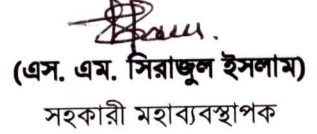 (এস. এম. সিরাজুল ইসলাম)
সহকারী মহাব্যবস্থাপক